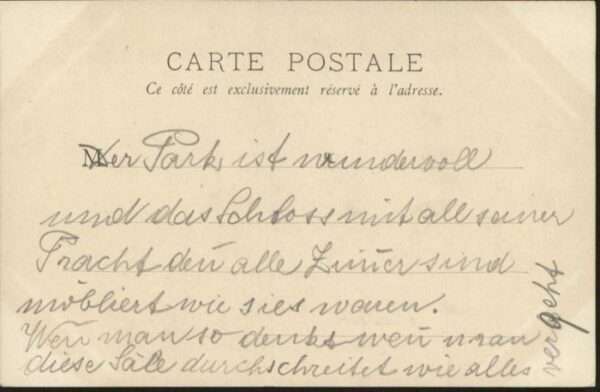 CARTE POSTALE
Ce côté est exclusivement réservé à l'adresse.
Der Park ist wundervoll
und das Schloss mit all seiner
Pracht deñ alle Zim̃er sind
möbliert wie sies waren.
Weñ man so denkt weñ man
diese Säle durchschreitet wie alles
vergeht